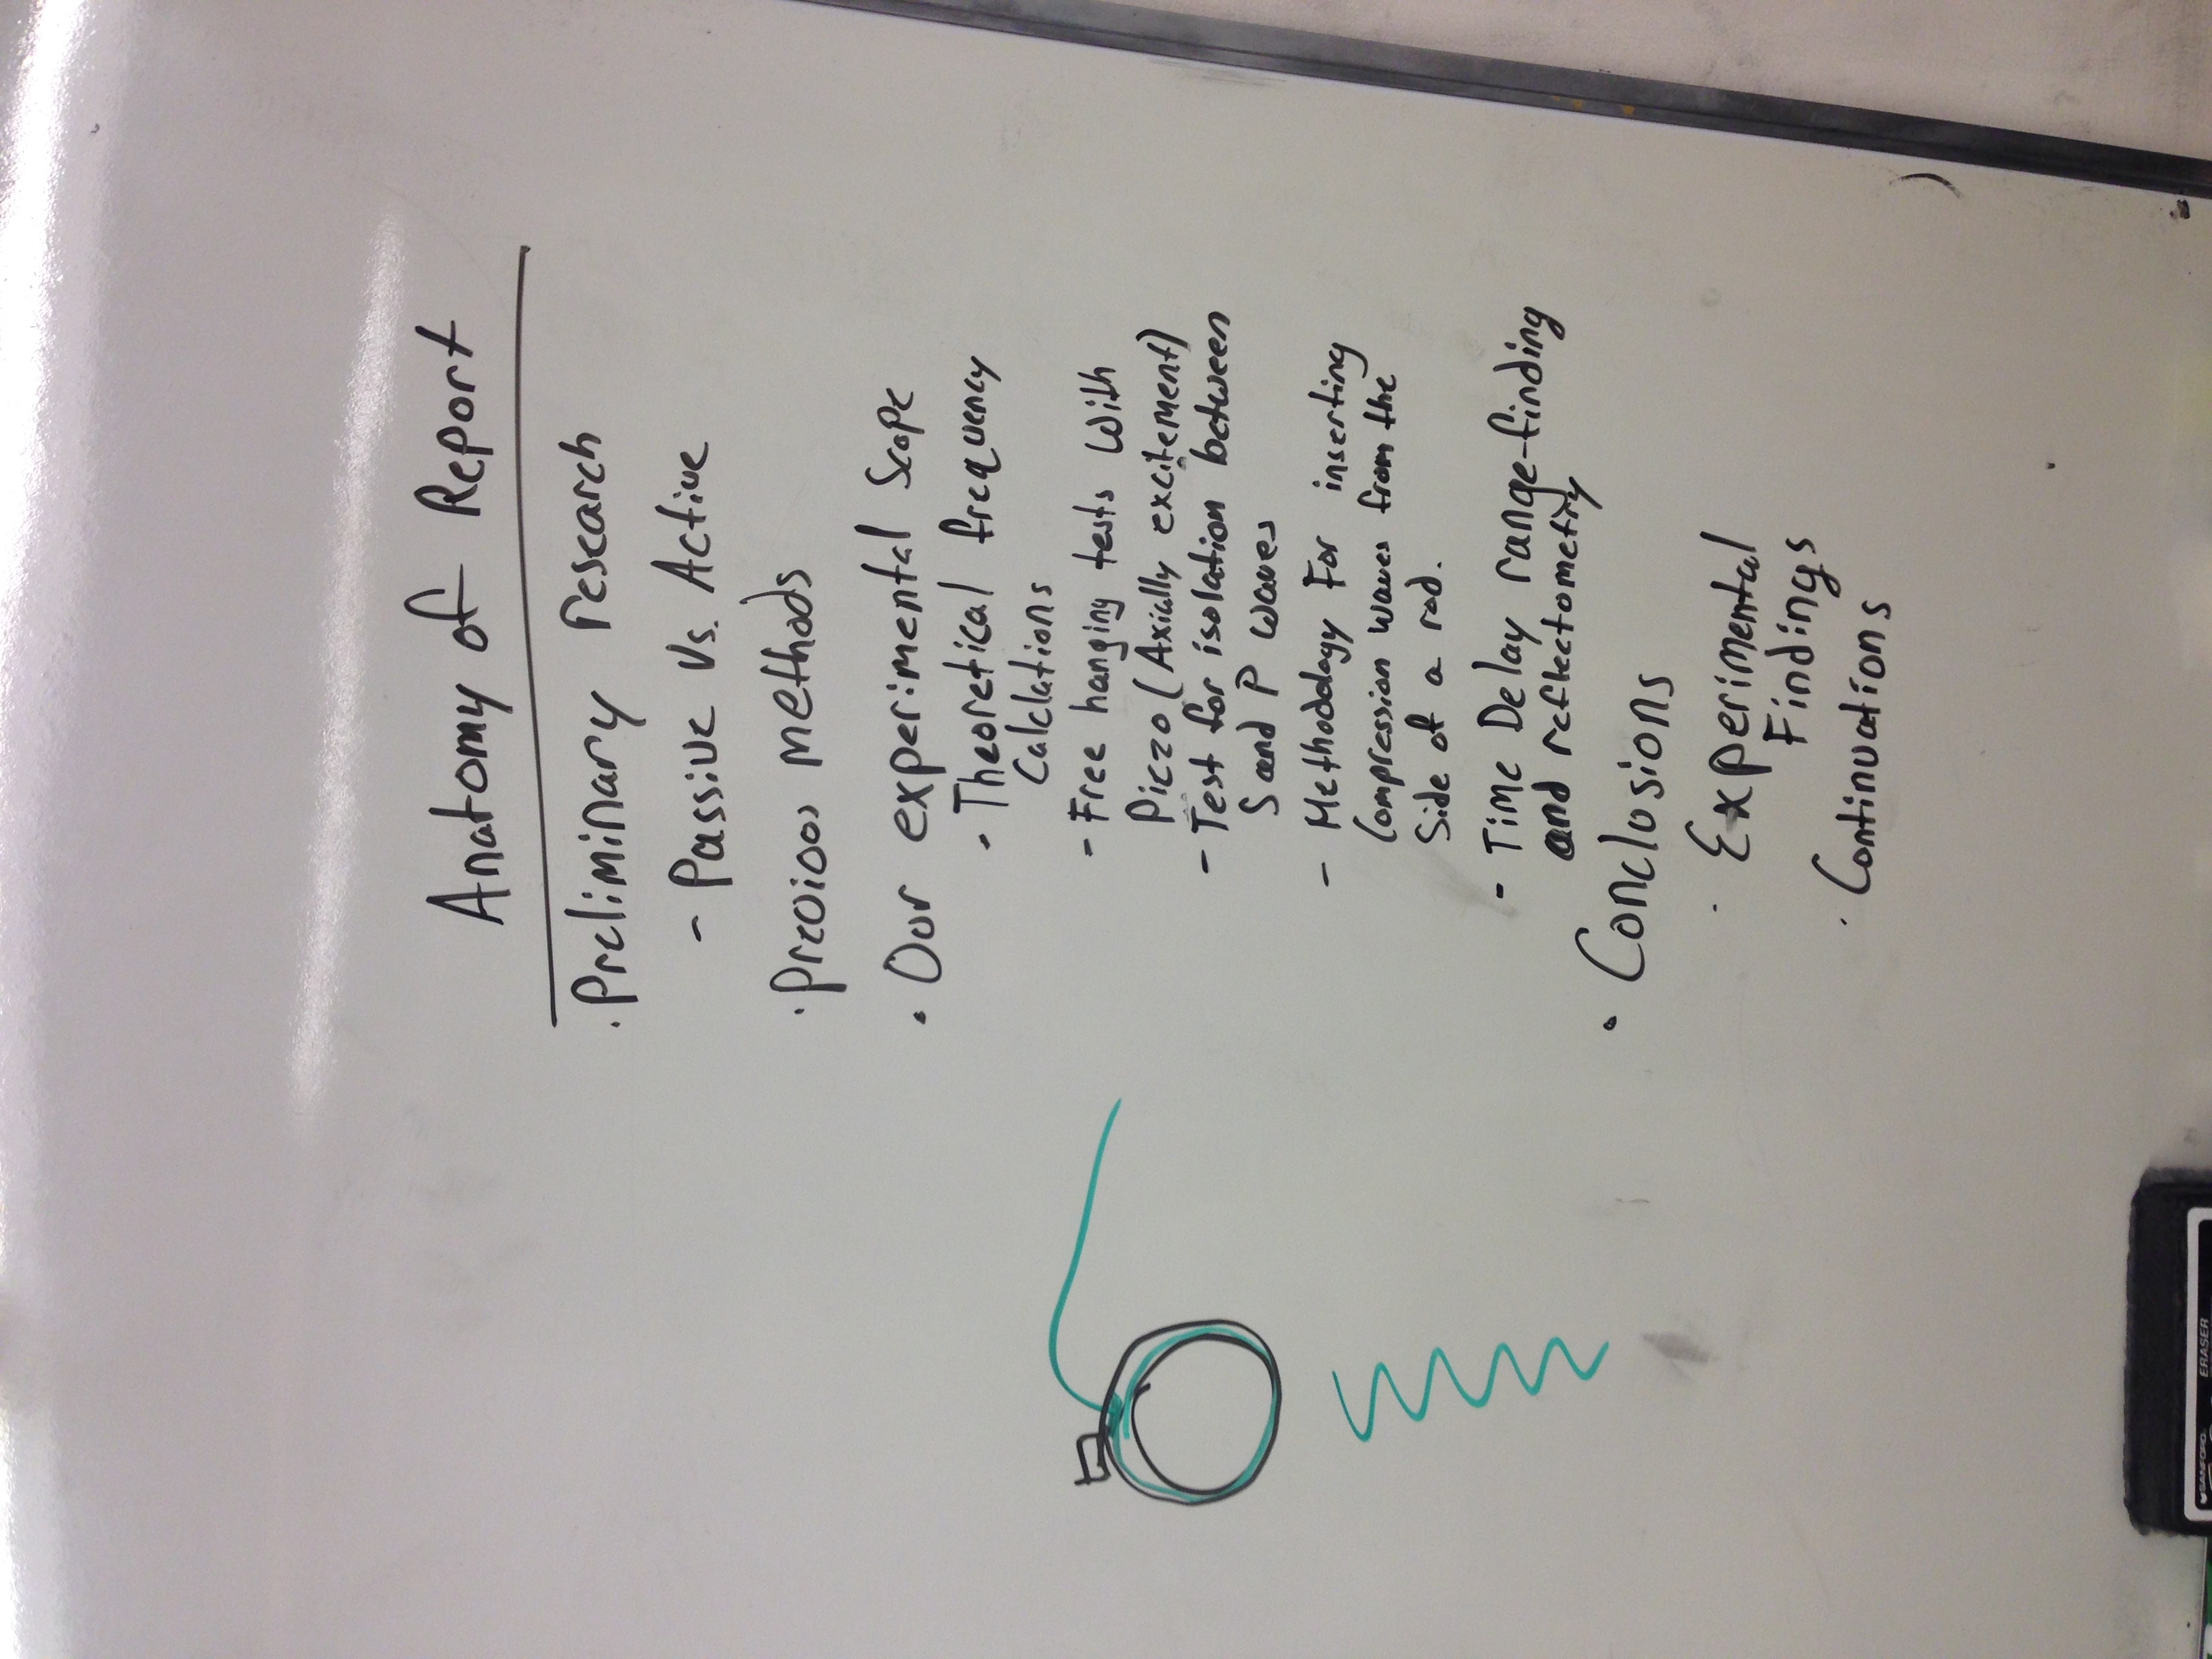 Anatomy of Report
· Preliminary research
- Passive Vs. Active
· Previous methods
· Our experimental Scope
- Theoretical frequency
Calclations
- Free hanging tests With
Piezo (Axially excitement)
- Test for isolation between
S and P waves
- Methodology For inserting
Compression waves from the
Side of a rod.
- Time Delay range-finding
and reflectometry
· Conclusions
· Experimental
Findings
· Continuations
SANFORD ERASER